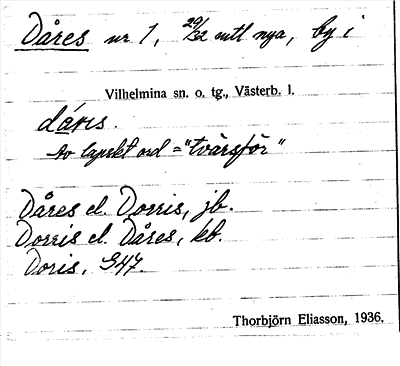 Dåres nr 1, 29/32 mtl nya, by i
Vilhelmina sn. o. tg., Västerb. l.
dáres.
Av lapskt ord = "tvärsför"
Dåres el. Dorris, jb.
Dorris el. Dåres, kb.
Doris, S47.
Thorbjörn Eliasson, 1936.